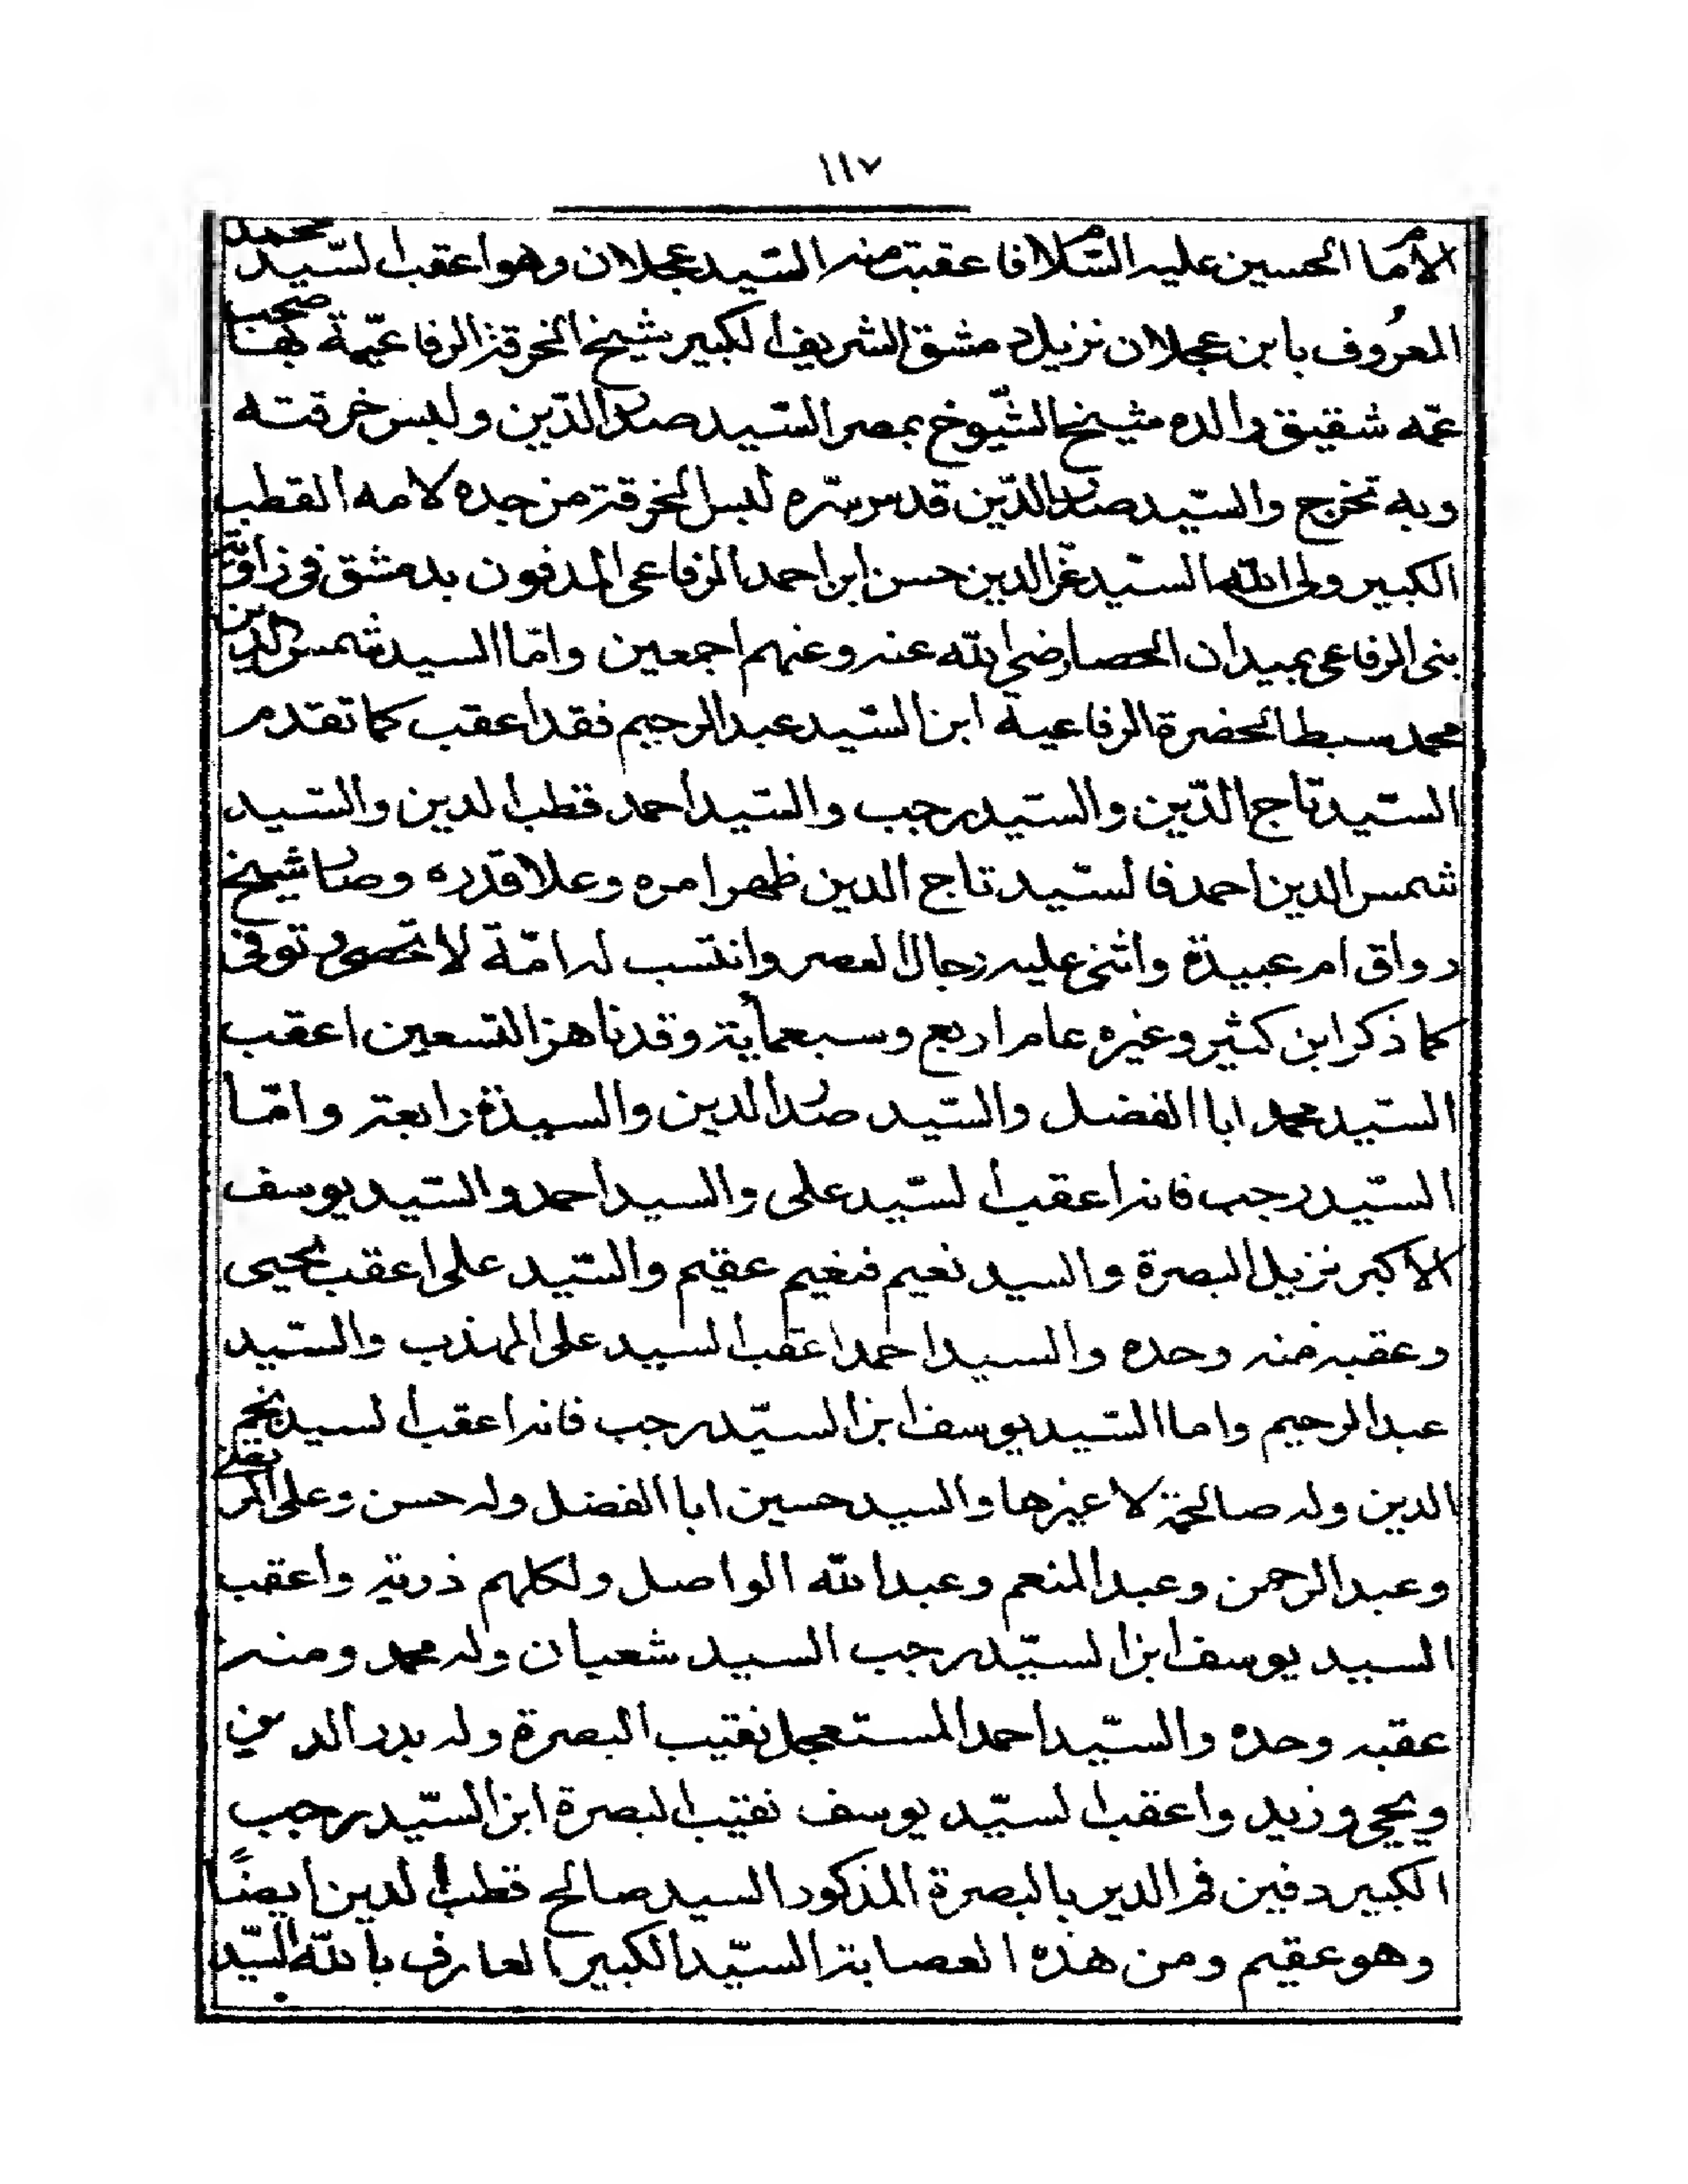 ١١٧
الامام الحسين عليه السلام فاعقبت منه السيد عجلان وهو اعقب السيد محمد
المعروف بابن عجلان نزيل دمشق الشريف الكبير شيخ الخرقة الرفاعية بها صحب
عمه شقيق والده شيخ الشيوخ بمصر السيد صدر الدين ولبس خرقته
وبه تخرج والسيد صدر الدين قدس سره لبس الخرقة من جده لامه القطب
الكبير ولي الله السيد عز الدين حسن ابن احمد الرفاعي المدفون بدمشق في زاوية
بني الرفاعي بميدان الحصا رضي الله عنه وعنهم اجمعين واما السيد شمس الدين
محمد سبط الحضرة الرفاعية ابن السيد عبد الرحيم فقد اعقب كما تقدم
السيد تاج الدين والسيد رجب والسيد احمد قطب الدين والسيد
شمس الدين احمد فالسيد تاج الدين ظهر امره وعلا قدره وصار شيخ
رواق ام عبيدة واثنى عليه رجال العصر وانتسب له امة لا تحصى وتوفى
كما ذكر ابن كثير وغيره عام اربع وسبعمأية وقد ناهز التسعين اعقب
السيد محمد ابا الفضل والسيد صدر الدين والسيدة رابعة واما
السيد رجب فانه اعقب السيد علي والسيد احمد والسيد يوسف
الاكبر نزيل البصرة والسيد نعيم فنعيم عقيم والسيد علي اعقب يحيى
وعقبه منه وحده والسيد احمد اعقب السيد علي المهذب والسيد
عبد الرحيم واما السيد يوسف ابن السيد رجب فانه اعقب السيد نجم
الدين وله صالحة لا غيرها والسيد حسين ابا الفضل وله حسن وعلى المرتقى
وعبد الرحمن وعبد المنعم وعبد الله الواصل ولكلهم ذرية واعقب
السيد يوسف ابن السيد رجب السيد شعبان وله محمد ومنه
عقبه وحده والسيد احمد المستعجل نقيب البصرة وله بدر الدين
ويحيى وزيد واعقب السيد يوسف نقيب البصرة ابن السيد رجب
الكبير دفين فم الدير بالبصرة المذكور السيد صالح قطب الدين ايضًا
وهو عقيم ومن هذه العصابة السيد الكبير العارف بالله السيد